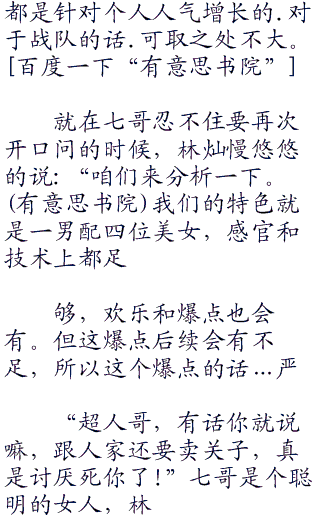 都是针对个人人气增长的.对
于战队的话.可取之处不大。
[百度一下“有意思书院”]
就在七哥忍不住要再次
开口问的时候，林灿慢悠悠
的说:“咱们来分析一下。
(有意思书院)我们的特色就
是一男配四位美女，感官和
技术上都足
够，欢乐和爆点也会
有。但这爆点后续会有不
足，所以这个爆点的话…严
“超人哥，有话你就说
嘛，跟人家还要卖关子，真
是讨厌死你了!”七哥是个聪
明的女人，林